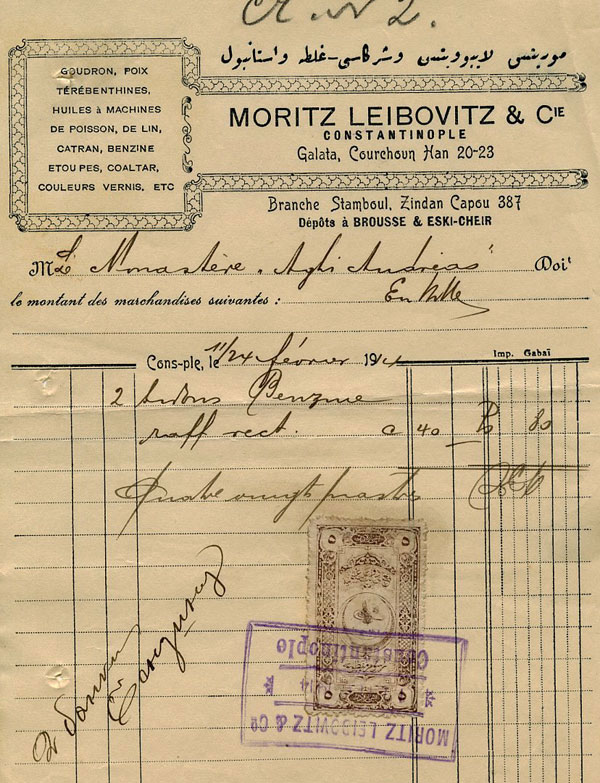 GOUDRON, POIX
TÉRÉBENTHINES,
HUILES à MACHINES
DE POISSON, DE LIN,
CATRAN, BENZINE
ETOUPES, COALTAR,
COULEURS VERNIS, ETC
موریتس لایبوویتس وشرکاسی-غلطه واستانبول
MORITZ LEIBOVITZ & CIE
CONSTANTINOPLE
Galata, Courchoun Han 20-23
Branche Stamboul, Zindan Capou 387
Dépôts à BROUSSE & ESKI-CHEIR
M Le Monastère "Aghi Andréas" Doit
le montant des marchandises suivantes : En Ville
Imp. Gabaï
Cons-ple, le 11/24 février 1914
2 bidons Benzine
raff rect. a 40 Ps 80
Quatre vingt piastres
MORITZ LEIBOVITZ & Co
14
Constantinople